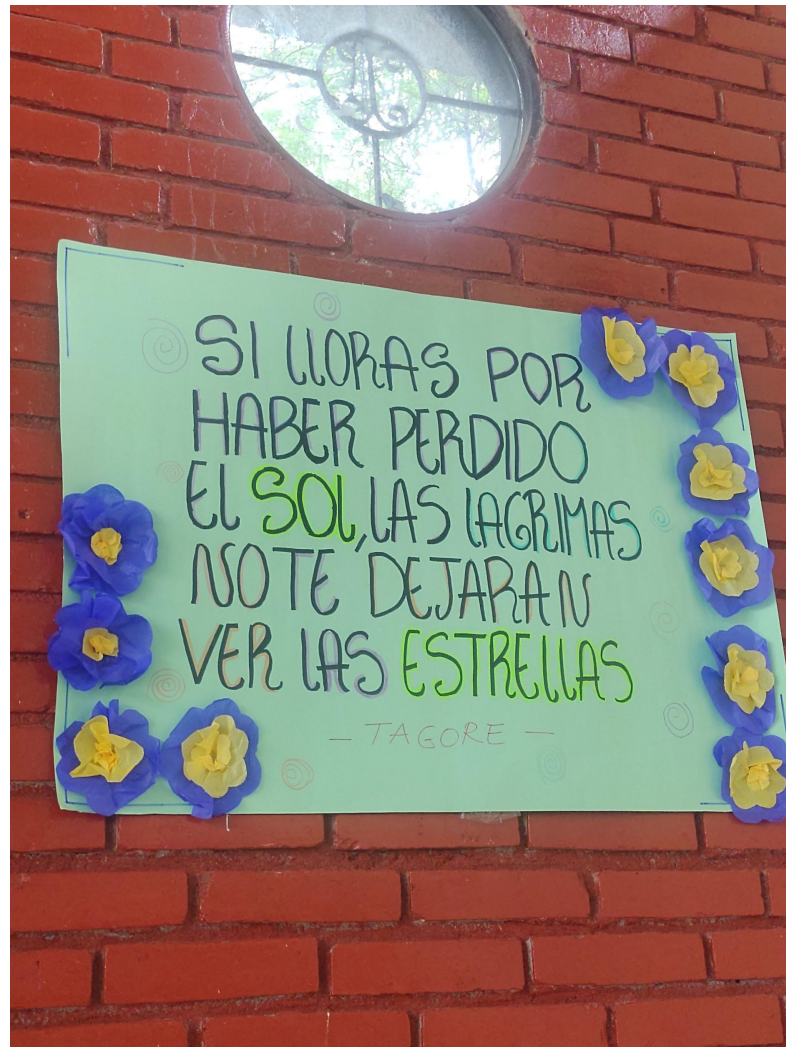 SI LLORAS POR
HABER PERDIDO
EL SOL, LAS LAGRIMAS
NO TE DEJARAN
VER LAS ESTRELLAS
- TAGORE -